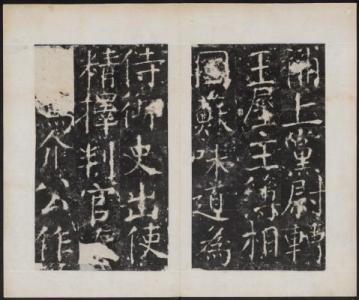 補上黨尉轉
王屋主簿相
國蘇味道為
侍御史出使
精擇判官
介公作